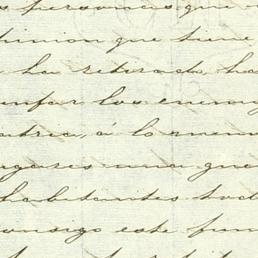 s personas que
opinion que tiene
ha retirado, ha
unfar los enemig
atria, á lo meno
gares una que
habitantes tod
onsigo este fun